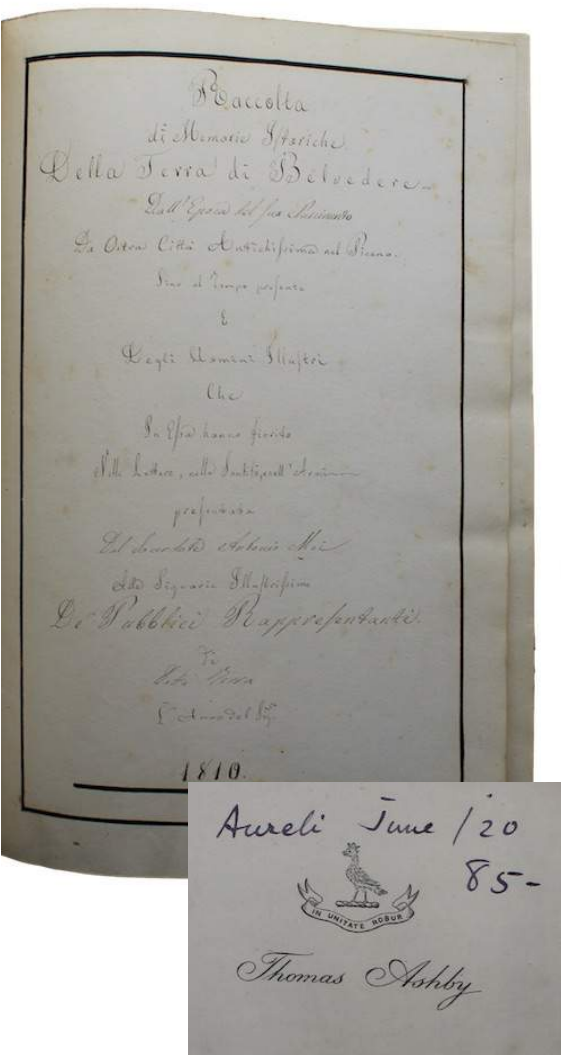 Raccolta
di Memorie Istoriche
Della Terra di Belvedere
Dall' Epoca del suo Nascimento
Da Ostra Città Antichissima nel Piceno
Sino al Tempo presente
E
Degli Uomini Illustri
Che
In Essa hanno fiorito
Nelle Lettere, nella Santità, nell' Armi
presentata
Dal Sacerdote Antonio Mei
Alle Signorie Illustrissime
De' Pubblici Rappresentanti
Di
Detta Terra
L' Anno del Sig.re
1810.
Aureli June /20
85-
IN UNITATE ROBUR
Thomas Ashby